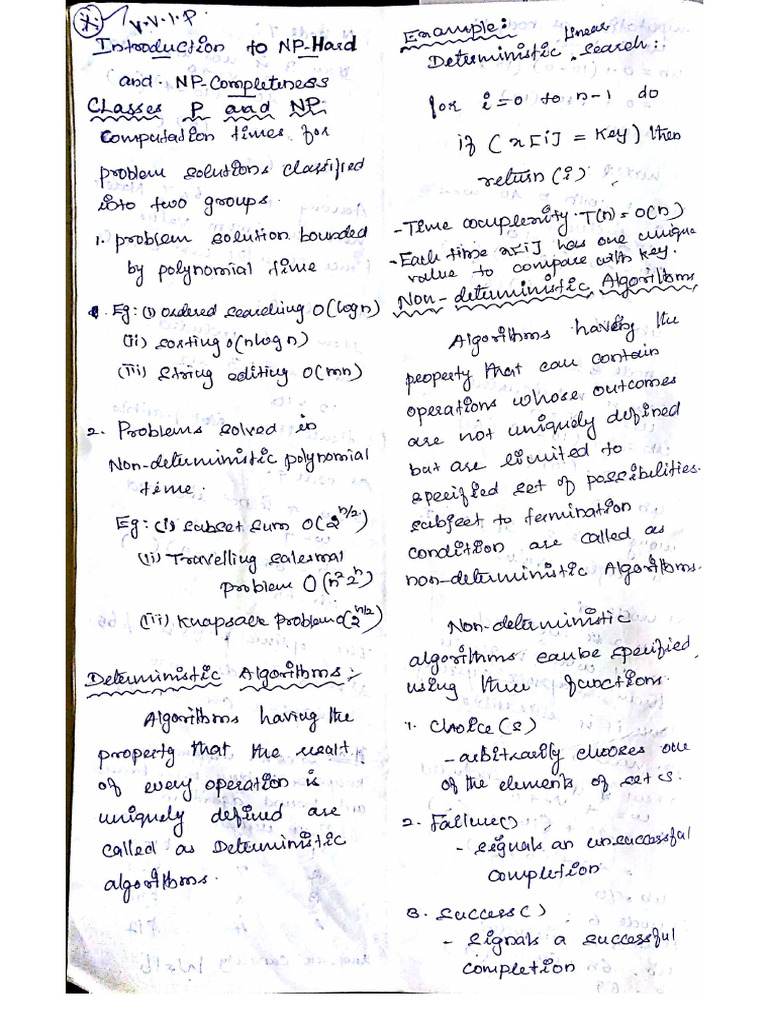 V.V.I.P.
Introduction to NP-Hard
and NP-Completeness
Classes P and NP:
Computation times for
problem solutions classified
into two groups.
1. problem solution bounded
by polynomial time
Eg: (i) ordered searching O(logn)
(ii) sorting O(nlogn)
(iii) string editing O(mn)
2. Problems solved in
Non-deterministic polynomial
time.
Eg: (i) subset sum O(2^n/2)
(ii) Travelling salesmal
problem O(n²2^n)
(iii) knapsack problem O(2^n/2)
Deterministic Algorithms:-
Algorithms having the
property that the result
of every operation is
uniquely defined are
called as Deterministic
algorithms.
Example:
Deterministic linear search:
for i=0 to n-1 do
if (x[i] = key) then
return (i)
-Time complexity T(n) = O(n)
-Each time x[i] has one unique
value to compare with key.
Non-deterministic Algorithms
Algorithms having the
property that can contain
operations whose outcomes
are not uniquely defined
but are limited to
specified set of possibilities.
subject to termination
condition are called as
non-deterministic Algorithms.
Non-deterministic
algorithms can be specified
using three functions.
1. Choice(s)
- arbitrarily chooses one
of the elements of set s.
2. Failure()
- signals an unsuccessful
completion
3. success()
- signals a successful
completion